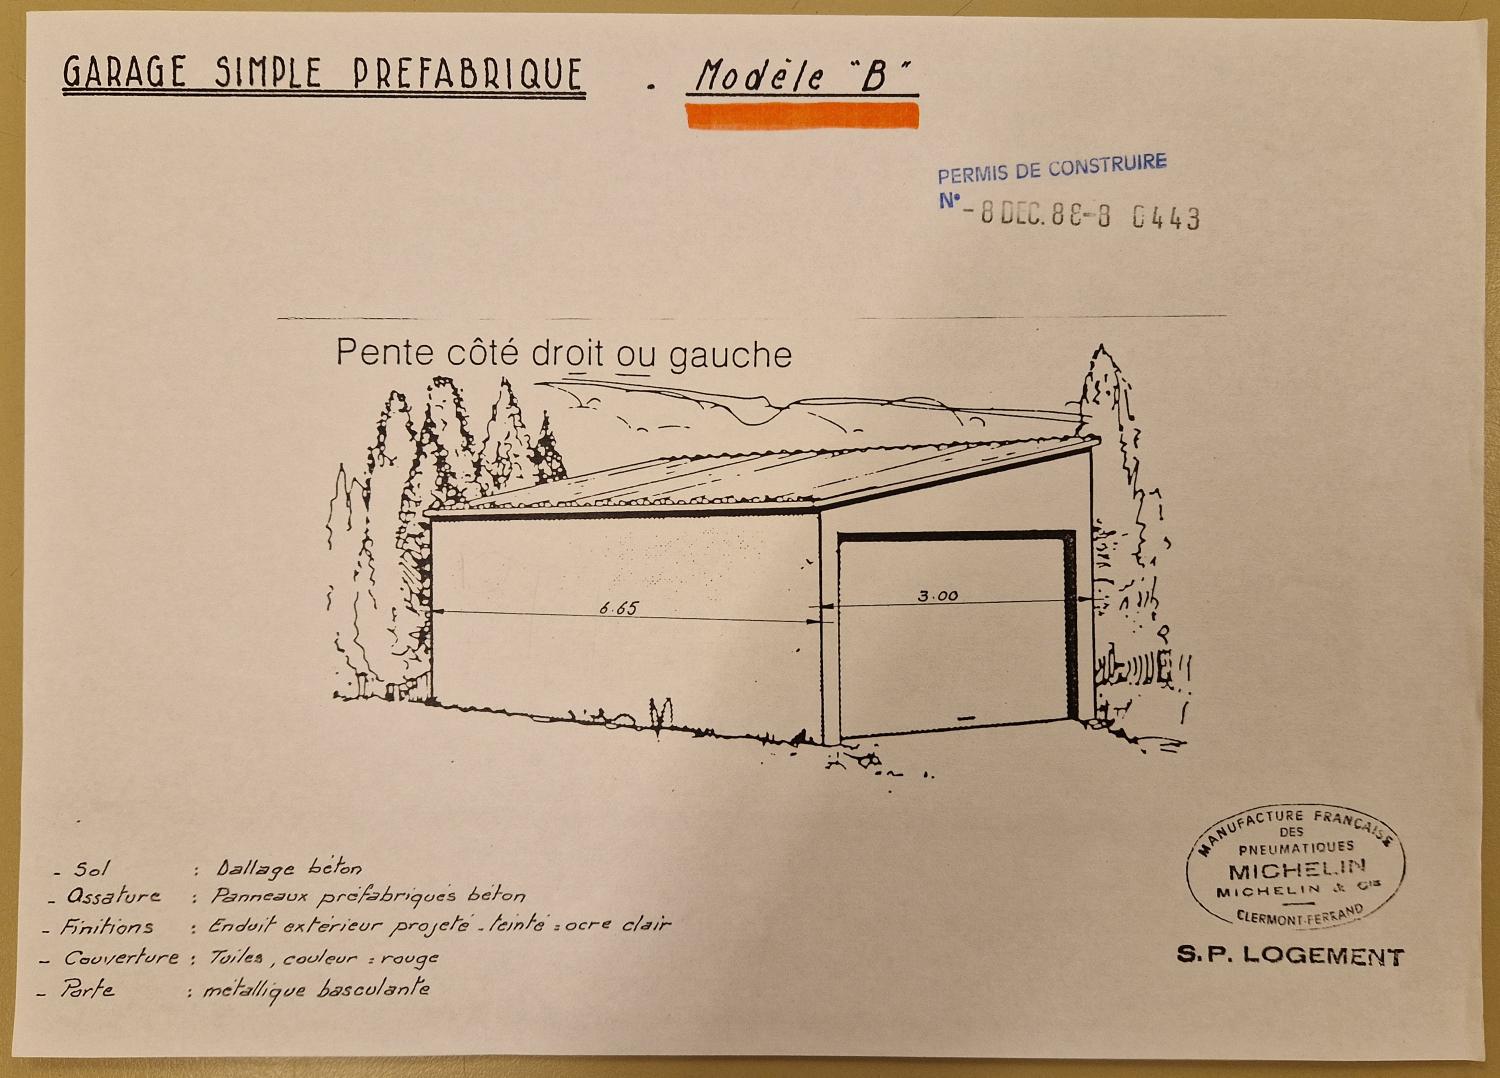 GARAGE SIMPLE PREFABRIQUE . Modèle "B"
PERMIS DE CONSTRUIRE
N° - 8 DEC. 88-8 0443
Pente côté droit ou gauche
6.65
3.00
- Sol : Dallage béton
- Ossature : Panneaux préfabriqués béton
- Finitions : Enduit extérieur projeté - teinté : ocre clair
- Couverture : Tuiles, couleur : rouge
- Porte : métallique basculante
MANUFACTURE FRANÇAISE
DES
PNEUMATIQUES
MICHELIN
MICHELIN & Cie
CLERMONT-FERRAND
S.P. LOGEMENT